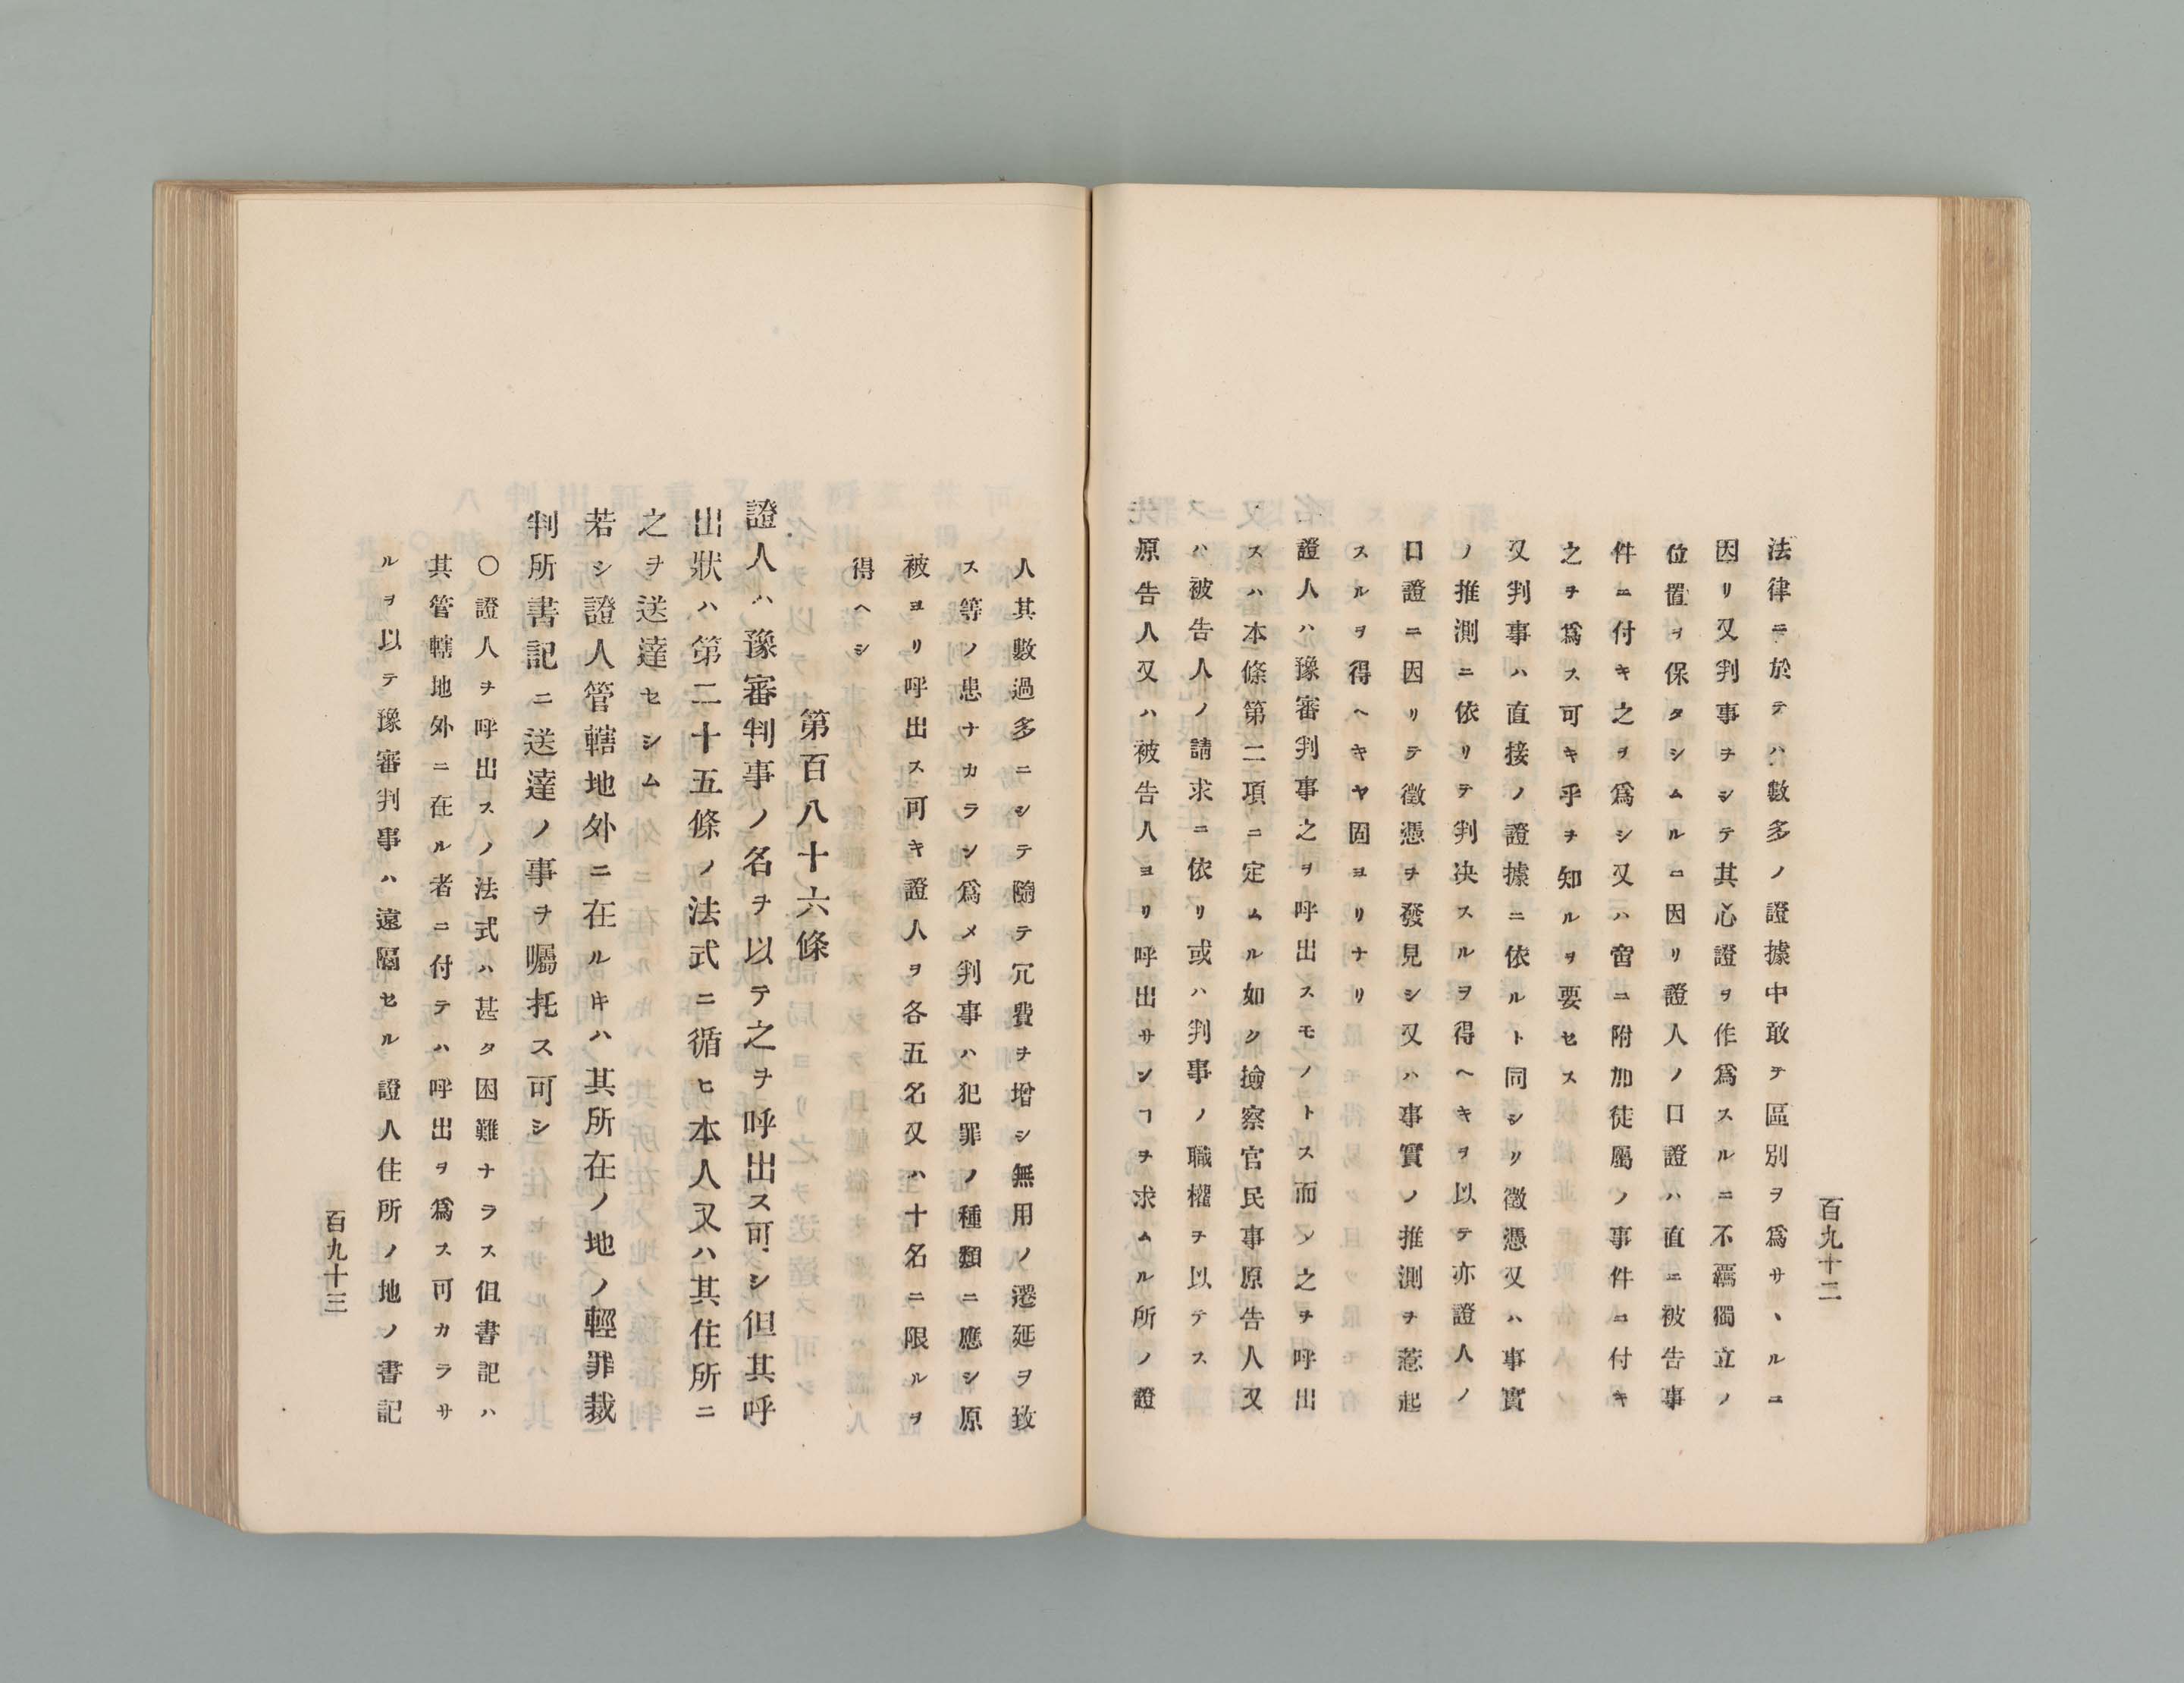 百九十二
法律ニ於テハ數多ノ證據中敢テ區別ヲ爲サヽルニ
因リ又判事ヲシテ其心證ヲ作爲スルニ不羈獨立ノ
位置ヲ保タシムルニ因リ證人ノ口證ハ直ニ被告事
件ニ付キ之ヲ爲シ又ハ啻ニ附加徒屬ノ事件ニ付キ
之ヲ爲ス可キ乎ヲ知ルヲ要セス
又判事ハ直接ノ證據ニ依ルト同シク徵憑又ハ事實
ノ推測ニ依リテ判决スルヲ得ヘキヲ以テ亦證人ノ
口證ニ因リテ徵憑ヲ發見シ又ハ事實ノ推測ヲ惹起
スルヲ得ヘキヤ固ヨリナリ
證人ハ豫審判事之ヲ呼出スモノトス而シテ之ヲ呼出
スハ本條第二項ニ定ムル如ク撿察官民事原告人又
ハ被告人ノ請求ニ依リ或ハ判事ノ職權ヲ以テス
原告人又ハ被告人ヨリ呼出サンヿヲ求ムル所ノ證
人其數過多ニシテ隨テ冗費ヲ增シ無用ノ遷延ヲ致
ス等ノ患ナカラン爲メ判事ハ犯罪ノ種類ニ應シ原
被ヨリ呼出ス可キ證人ヲ各五名又ハ十名ニ限ルヲ
得ヘシ
第百八十六條
證人ハ豫審判事ノ名ヲ以テ之ヲ呼出ス可シ但其呼
出狀ハ第二十五條ノ法式ニ循ヒ本人又ハ其住所ニ
之ヲ送達セシム
若シ證人管轄地外ニ在ルキハ其所在ノ地ノ輕罪裁
判所書記ニ送達ノ事ヲ囑托ス可シ
〇證人ヲ呼出スノ法式ハ甚タ困難ナラス但書記ハ
其管轄地外ニ在ル者ニ付テハ呼出ヲ爲ス可カラサ
ルヲ以テ豫審判事ハ遠隔セル證人住所ノ地ノ書記
百九十三